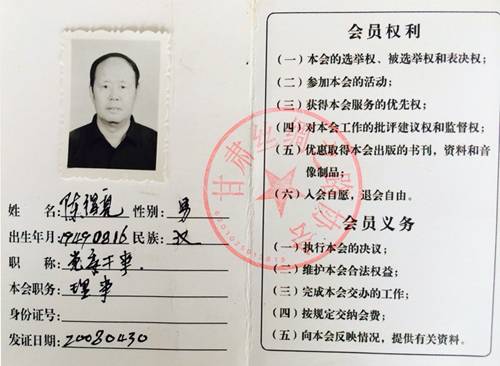 姓　名: 陈得亮 性别: 男
出生年月: 19490816 民族: 汉
职　称: 党委干事
本会职务: 理事
身份证号:
发证日期: 20080430
会员权利
(一) 本会的选举权、被选举权和表决权;
(二) 参加本会的活动;
(三) 获得本会服务的优先权;
(四) 对本会工作的批评建议权和监督权;
(五) 优惠取得本会出版的书刊，资料和音
像制品;
(六) 入会自愿，退会自由。
会员义务
(一) 执行本会的决议;
(二) 维护本会合法权益;
(三) 完成本会交办的工作;
(四) 按规定交纳会费;
(五) 向本会反映情况，提供有关资料。
甘肃丝绸之路协会